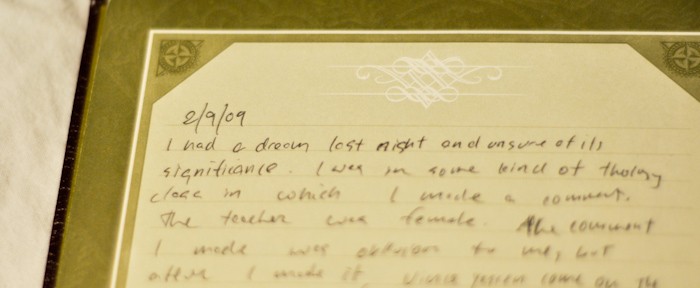 2/9/09
I had a dream last night and unsure of its
significance. I was in some kind of tholagy
class in which I made a comment.
The teacher was female. The comment
I made was obvious to me, but
after I made it, came on the